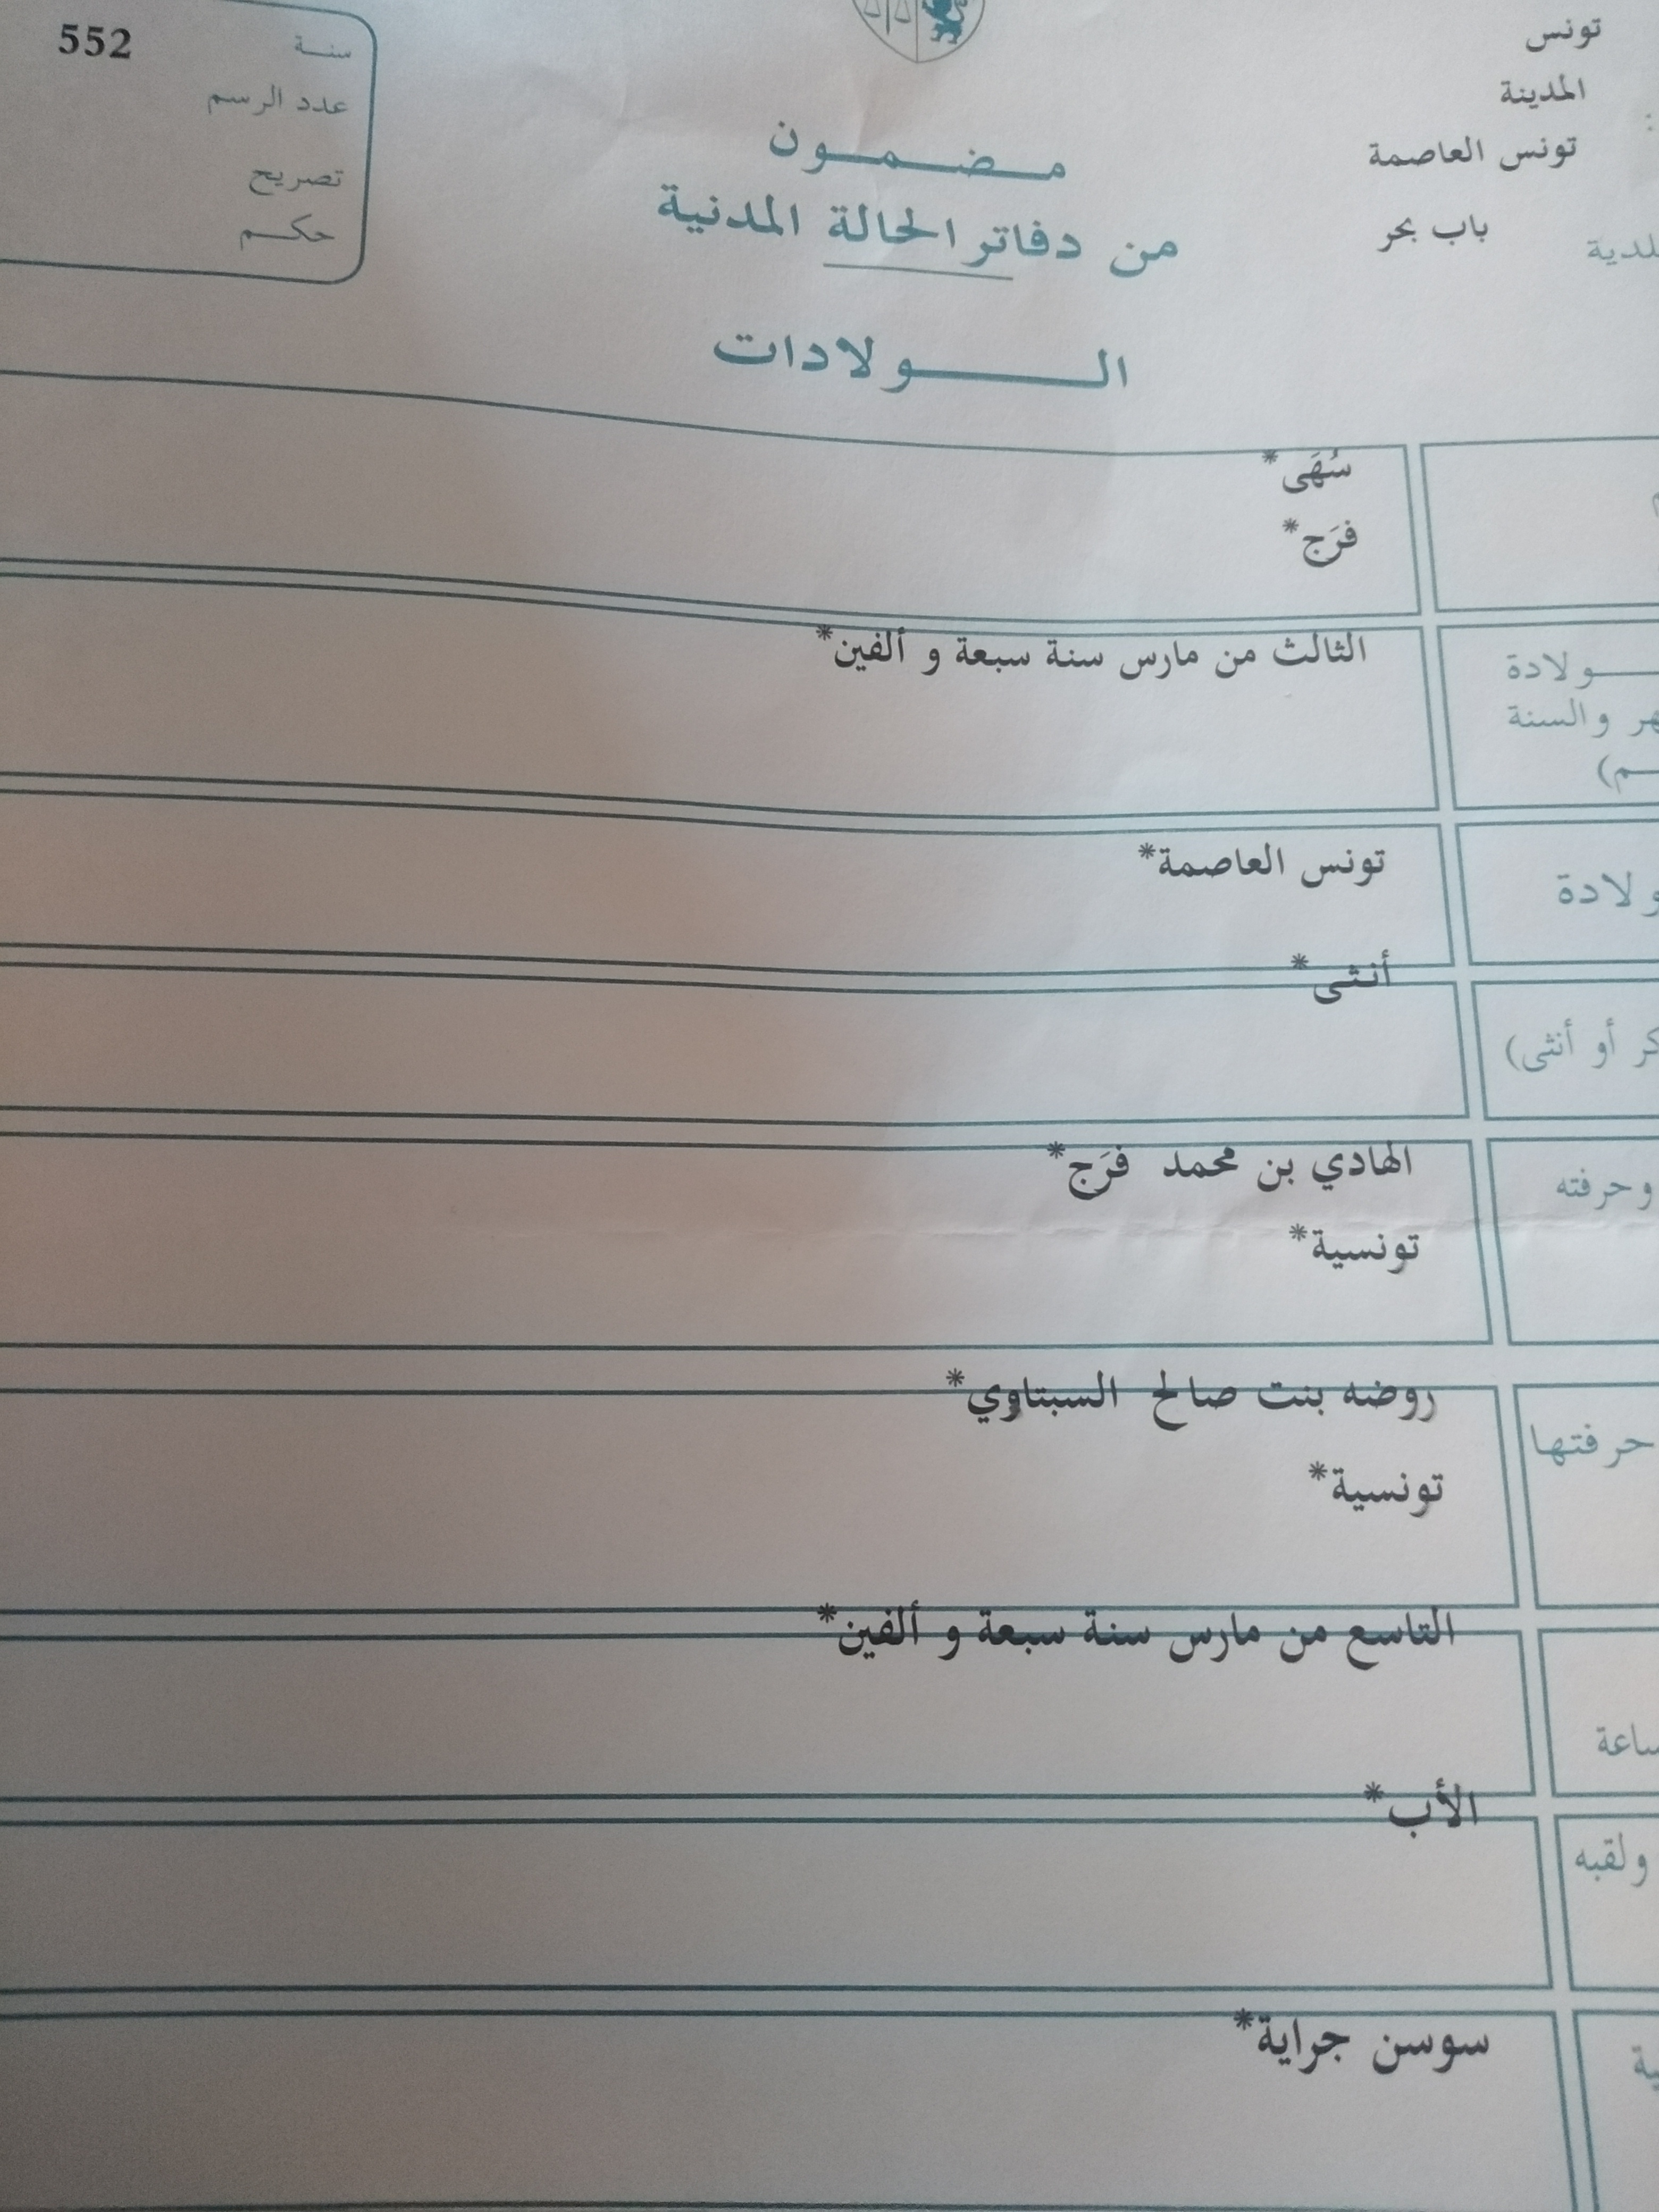 تونس
المدينة
تونس العاصمة
باب بحر
سنة 552
عدد الرسم
تصريح
حكم
مضمون
من دفاتر الحالة المدنية
الولادات
سُهَى*
فرَج*
ولادة
الثالث من مارس سنة سبعة و ألفين*
والسنة
ولادة
تونس العاصمة*
أنثى*
أو أنثى)
وحرفته
الهادي بن محمد فرَج*
تونسية*
روضه بنت صالح السبتاوي*
حرفتها
تونسية*
التاسع من مارس سنة سبعة و ألفين*
الأب*
ولقبه
سوسن جراية*